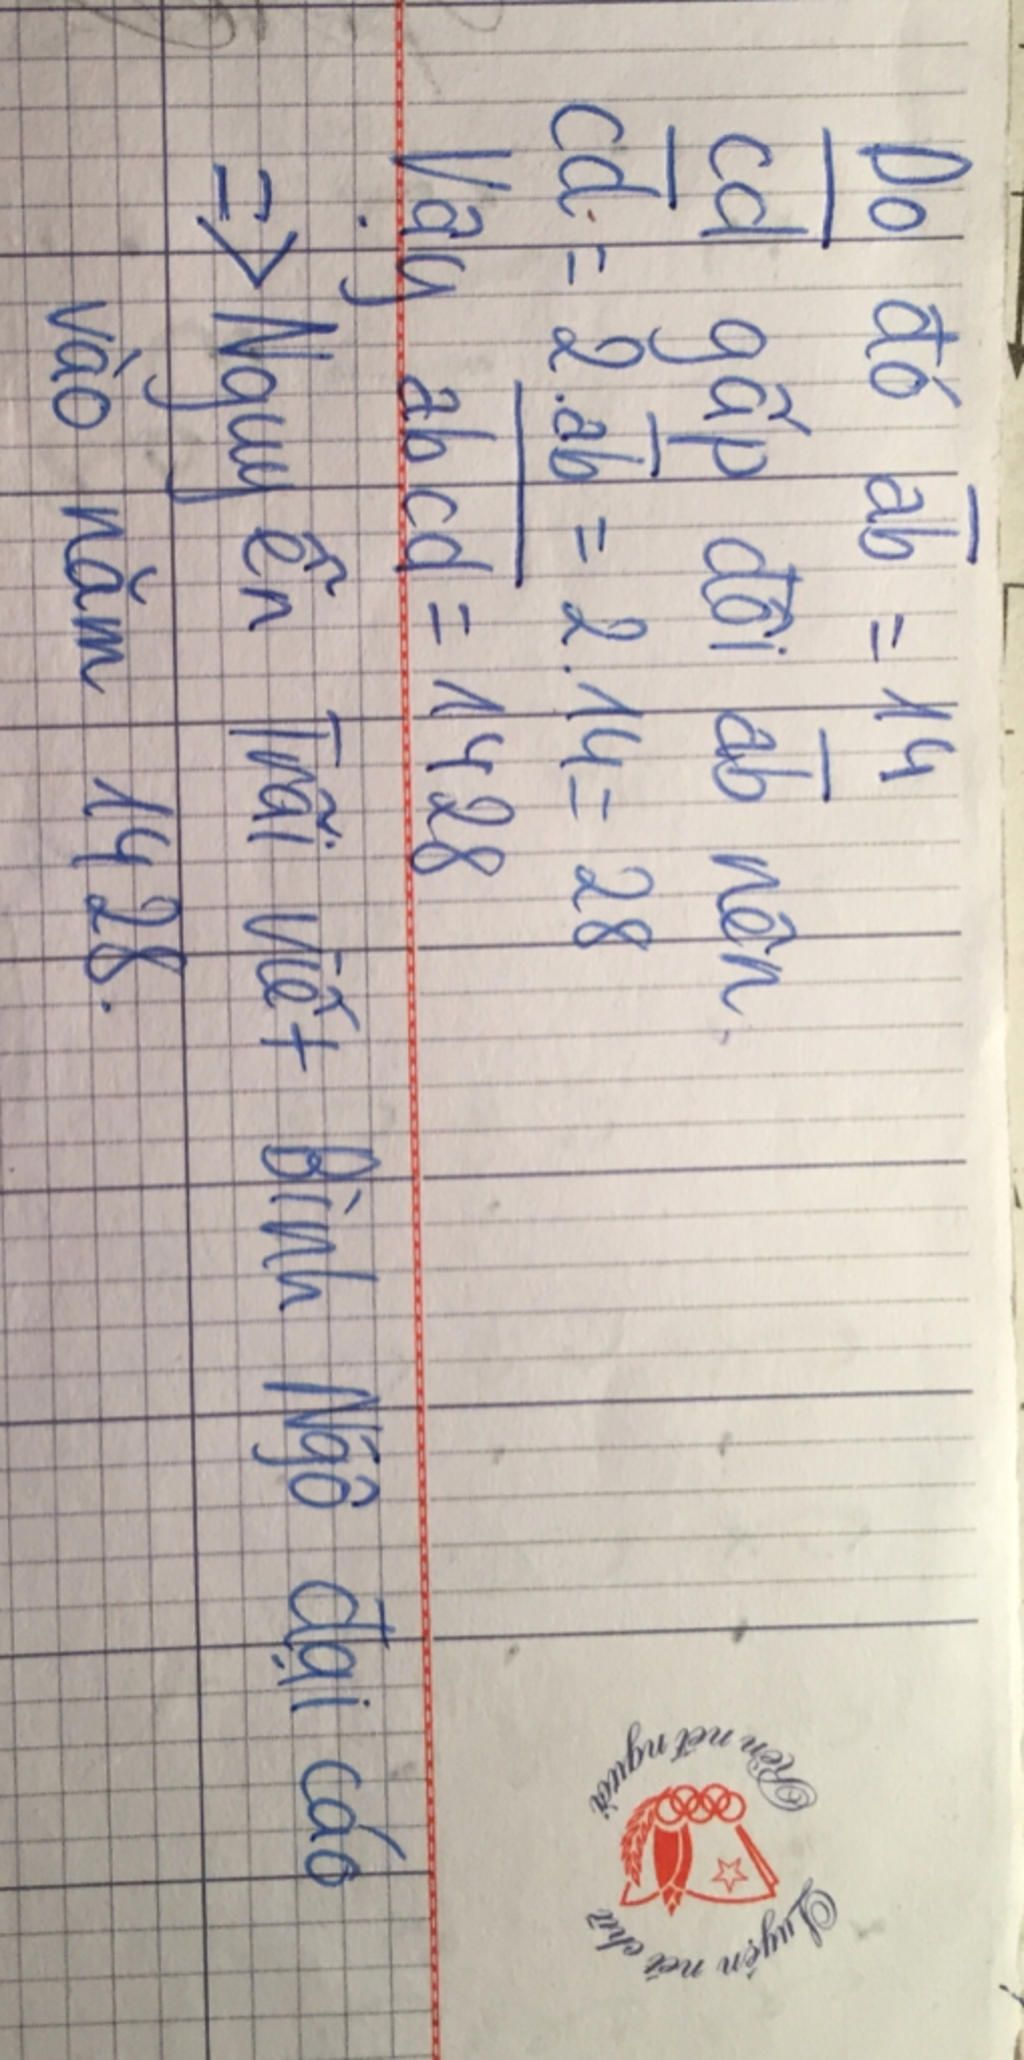 Do đó ab = 14
cd gấp đôi ab nên
cd = 2.ab = 2.14 = 28
Vậy abcd = 1428
=> Nguyễn Trãi viết Bình Ngô đại cáo
vào năm 1428.
Luyện nét chữ
Rèn nét người